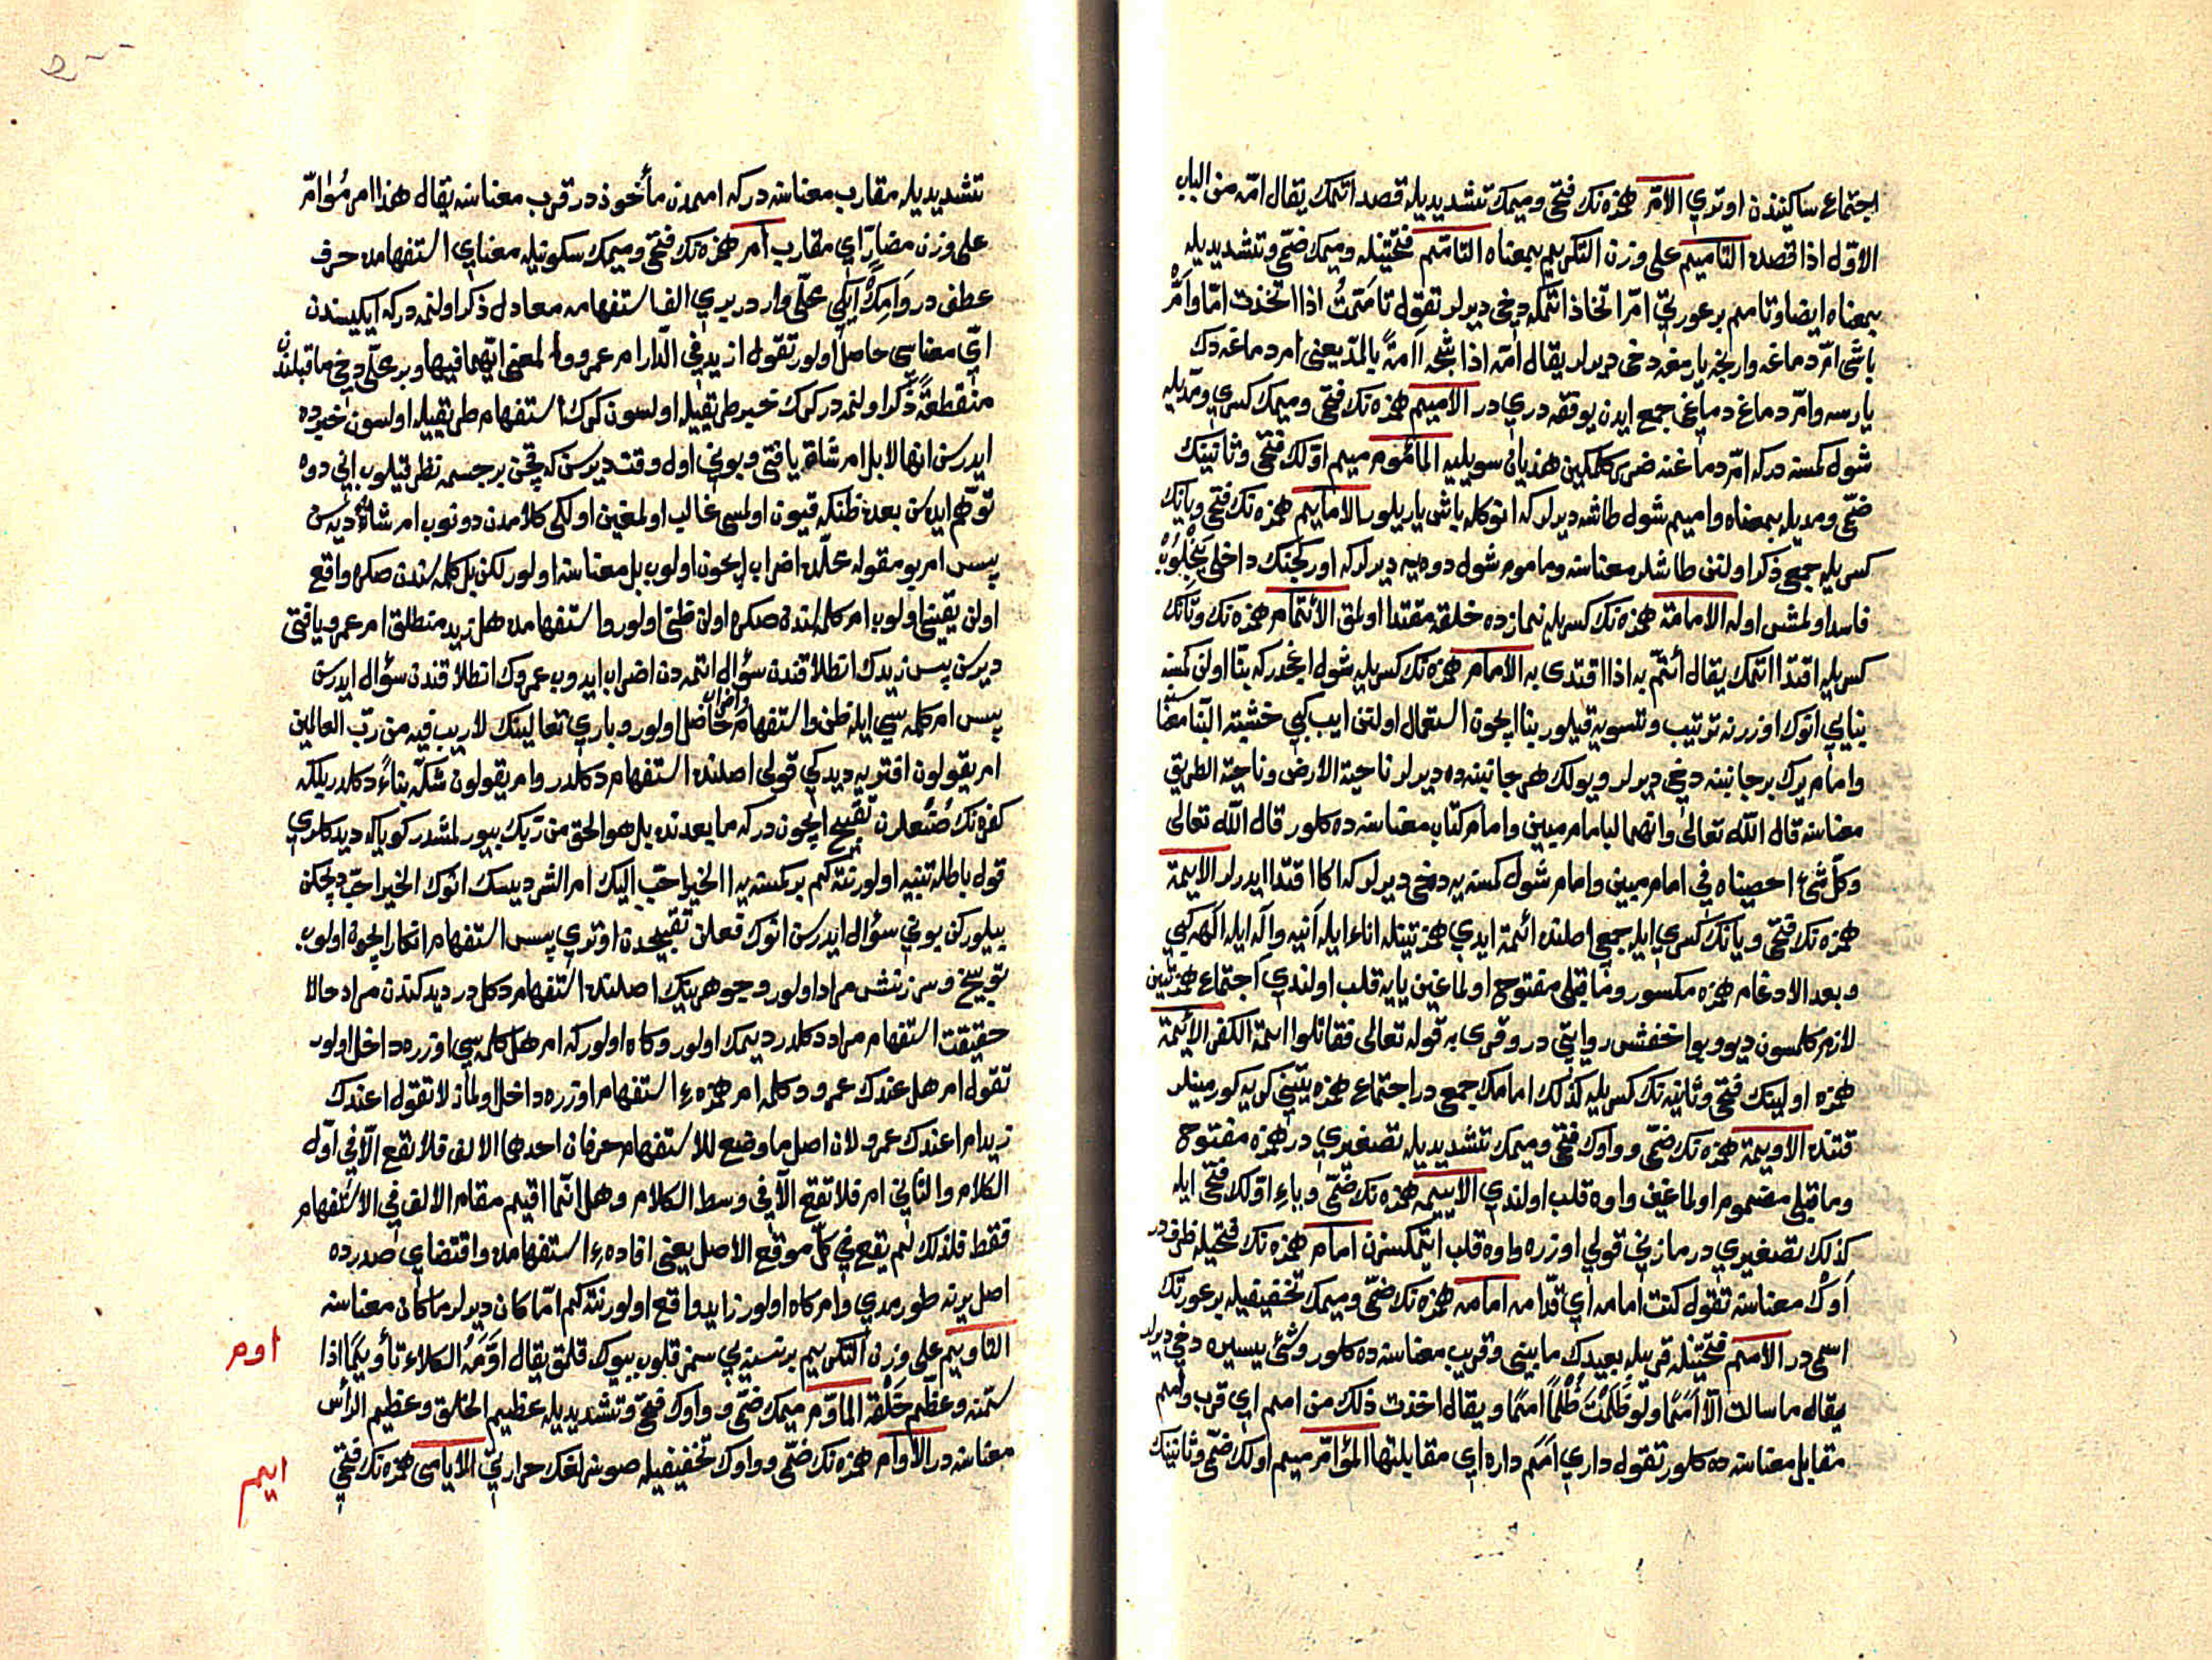 اجتماع ساكنيندن اوتوري الامّ همزه‌نك فتحى وميمك تشديديله قصد اتمك يقال امّه من الباب
الاوّل اذا قصده التأميم على وزن التكريم بمعناه التأمّم فتحتينله وميمك ضمّى وتشديديله
بمعناه ايضا وتأمم بر عورتى امّ اتخاذ اتمكه دخى ديرلر تقول تأمّمتُ اذا اتخذت امّا وامّ
باشى امّ دماغه وارنجه يارمغه دخى ديرلر يقال امّه اذا شجه آمّة بالمدّ يعنى ام دماغه دك
يارسه وامّ دماغ دماغى جمع ايدن يوفقه دري در الاميم همزه‌نك فتحى وميمك كسري ومدّيله
شول كمسه در كه امّ دماغنه ضرب كلمكين هذيان سويليه المأموم ميم اوّلك فتحى وثانينك
ضمّى ومديله بمعناه واميم شول طاشه ديرلر كه انوكله باش ياريلور الاماييم همزه‌نك فتحى ويانك
كسريله جمعى ذكر اولنن طاشلر معناسنه ومأموم شول دوه‌يه ديرلر كه اوركجنك داخلى
فاسد اولمش اوله الامامة همزه‌نك كسريله نمازده خلقه مقتدا اولمق الائتمام همزه‌نك وتانك
كسريله اقتدا اتمك يقال أئتمّ به اذا اقتدى به الامام همزه‌نك كسريله شول اغجدر كه بنّا اولن كمسه
بنايى انوك اوزرنه ترتيب وتسويه قيلور بنا ايچون استعمال اولنن ايب كبى خشبة البنّا معنا
وامام يرك بر جانبنه دخى ديرلر ويولك هر جانبنه ده ديرلر ناحية الارض وناحية الطريق
معناسنه قال الله تعالى وانهما لبامام مبين وامام كتاب معناسنه ده كلور قال الله تعالى
وكلّ شئ احصيناه في امام مبين وامام شول كمسه‌يه دخى ديرلر كه اكا اقتدا ايدرلر الايمة
همزه‌نك فتحى ويانك كسري ايله جمعى اصلنده ائممة ايدي همزتينله اناء ايله آنيه وآله ايله الهه كبى
وبعد الادغام همزه مكسور وماقبلى مفتوح اولماغين يايه قلب اولندي اجتماع همزتين
لازم كلمسون ديو وبو اخفش روايتى در وقرى به قوله تعالى فقاتلوا ائمة الكفر الأئمة
همزه اولينك فتحى وثانيه‌نك كسريله كذلك امامك جمعى در اجتماع همزه‌تينى كريه كورمينلر
قتنده الاويمة همزه‌نك ضمّى وواوك فتحى وميمك تشديديله تصغيري در همزه مفتوح
وماقبلى مضموم اولماغين واوه قلب اولندي الاييمه همزه‌نك ضمّى وياء اوّلك فتحى ايله
كذلك تصغيري در مازنى قولى اوزره واوه قلب ايتمكسزن امام همزه‌نك فتحيله ظرفدر
اوك معناسنه تقول كنت امامه اي قدّامه امامه همزه‌نك ضمّى وميمك تخفيفيله بر عورتك
اسمى در الامم فتحتينله قريبله بعيدك مابينى وقريب معناسنه ده كلور وشئ يسيره دخى ديرلر
يقال ما سالت الّا امَمًا ولو ظلمْتَ ظُلمًا امَمًا ويقال اخذت ذلك من امم اي قرب وامم
مقابل معناسنه ده كلور تقول داري امَم داره اي مقابلتها المؤامّ ميم اولك ضمّى وثانينك
تشديديله مقارب معناسنه در كه اممدن مأخوذ در قرب معناسنه يقال هذا امر مُؤامّ
على وزن مضارّ اي مقارب أم همزه‌نك فتحى وميمك سكونيله معناي استفهامده حرف
عطف در وامك ايكى محلّى وار در بري الف استفهامه معادل ذكر اولنمه در كه ايكيسندن
ايّ معناسي حاصل اولور تقول ازيد في الدار ام عمرو والمعنى ايهما فيها وبر محلّى دخى ماقبلندن
منقطعةً ذكر اولنمه در كرك خبر طريقيله اولسون كرك استفهام طريقيله اولسون خبرده
ايدرسن انها لابل ام شاة يا فتى وبونى اول وقت ديرسن كه قچن بر جسمه نظر قيلوب انى دوه
توهّم ايدسن بعده ظنكه قيون اولمسى غالب اولمغين اولكى كلامدن دونوب ام شاة ديه‌سن
پس ام بو مقوله محلّده اضراب ايچون اولوب بل معناسنه اولور لكن بل كلمه‌سندن صكره واقع
اولن يقينى اولوب ام كلمه‌سندن صكره اولن ظنّى اولور واستفهامده هل زيد منطلق ام عمرو يا فتى
ديرسن پس زيدك انطلاقندن سؤال اتمه‌دن اضراب ايدوب عمروك انطلاقندن سؤال ايدرسن
پس ام كلمه‌سي ايله ظن واستفهام واضراب حاصل اولور وباري تعالينك لاريب فيه من ربّ العالمين
ام يقولون افتريه ديدكى قولى اصلنده استفهام دكلدر وام يقولون شكّه بناءً دكلدر بلكه
كفره‌نك صُنعلرن تقبيح ايچون در كه مابعدنده بل هو الحق من ربّك بيورلمشدر كويا كه ديدكلري
قول باطله تنبيه اولور نتكم بر كمسه‌يه الخير احبّ اليك ام الشر ديسك انوك الخير احبّ ديجكن
بيلوركن بونى سؤال ايدرسن انوك فعلن تقبيحدن اوتوري پس استفهام انكار ايچون اولوب
توبيخ وسرزنش مراد اولور وجوهرينك اصلنده استفهام دكل در ديدكندن مراد حالا
حقيقت استفهام مراد دكلدر ديمك اولور وكاه اولور كه ام هل كلمه‌سي اوزره داخل اولور
تقول ام هل عندك عمرو دكلمه ام همزه‌ء استفهام اوزره داخل اولماز لاتقول اعندك
زيد ام اعندك عمرو لان اصل ما وضع للاستفهام حرفان احدهما الالف فلا تقع الّا في اوّل
الكلام والثاني ام فلا تقع الّا في وسط الكلام وهل انّما اقيم مقام الالف في الاستفهام
فقط فلذلك لم يقع في كلّ موقع الاصل يعنى افاده‌ء استفهامده واقتضاى صدرده
اصل يرنه طورمدي وام كاه اولور زايد واقع اولور نتكم امّا كان ديرلر ما كان معناسنه
التأويم على وزن التكريم بر نسنه‌يي سمز قلوب بيوك قلمق يقال اوّمَهُ الكلاء تأويمًا اذا
سمّنه وعظّم خَلْقه المأوّم ميمك ضمّى وواوك فتحى وتشديديله عظيم الخلق وعظيم الرأس
معناسنه در الأوام همزه‌نك ضمّى وواوك تخفيفيله صوسزلغك حرارتى الايامى همزه‌نك فتحى
اوم
ايم